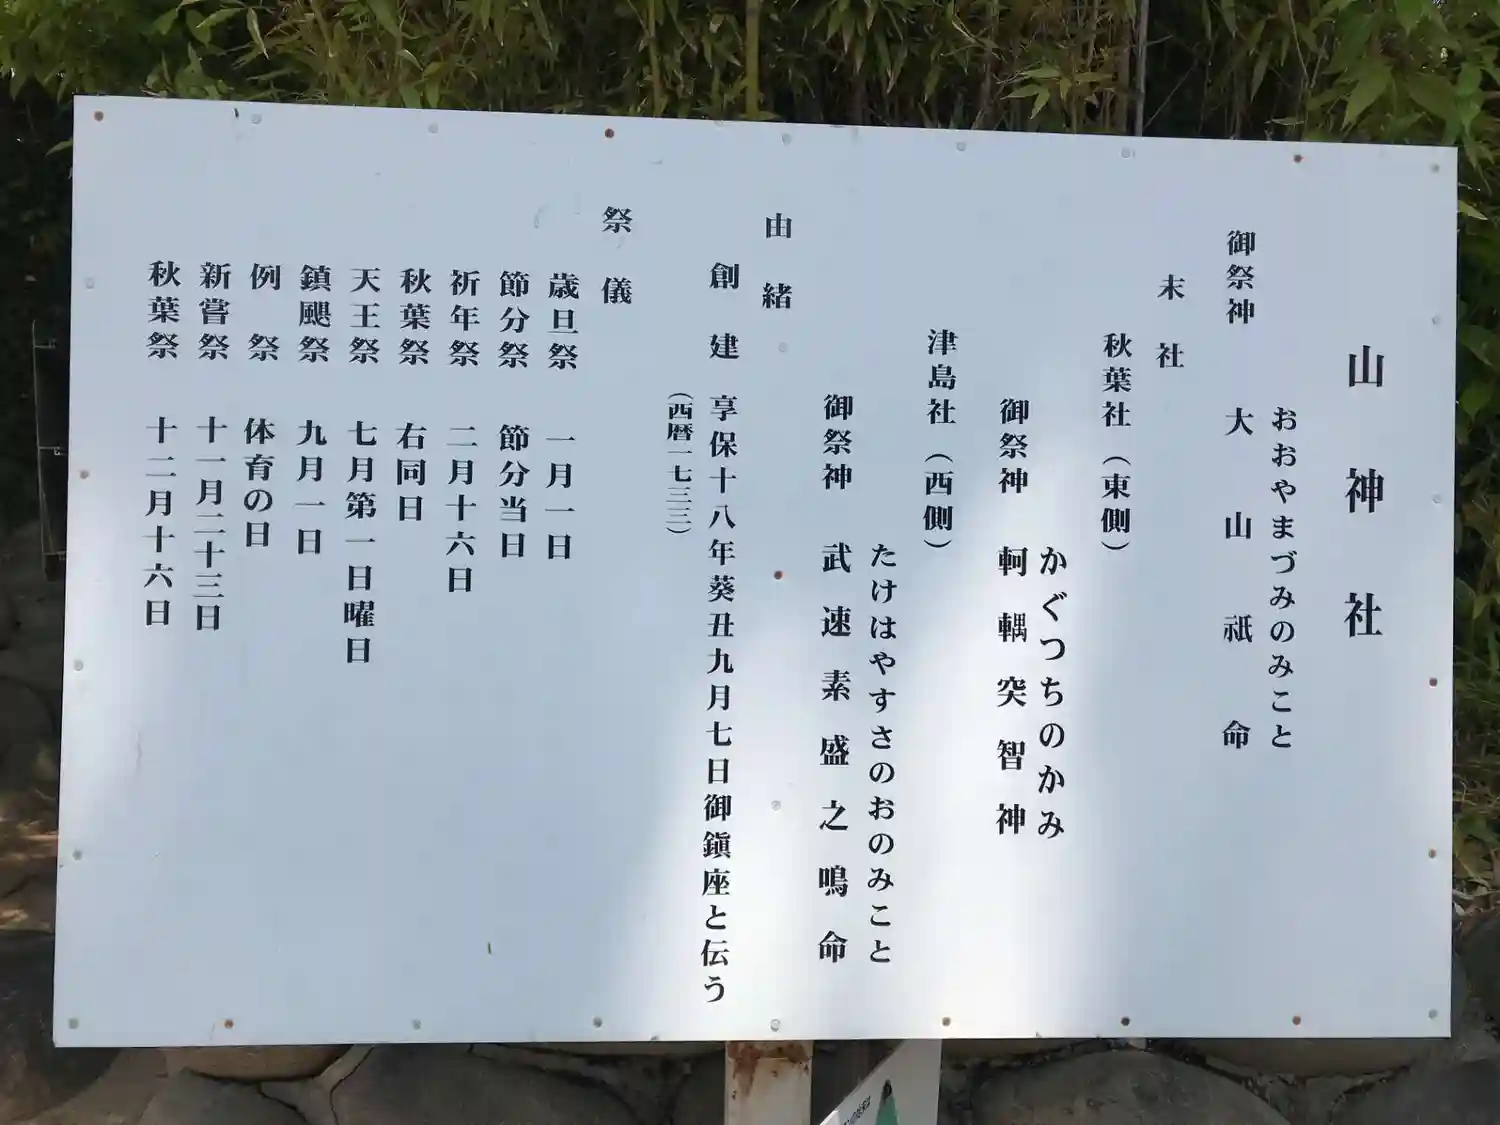 山神社
おおやまづみのみこと
御祭神 大山祇命
末社
秋葉社（東側）
かぐつちのかみ
御祭神 軻轋突智神
津島社（西側）
たけはやすさのおのみこと
御祭神 武速素盛之鳴命
由緒
創建 享保十八年葵丑九月七日御鎮座と伝う
（西暦一七三三）
祭儀
歳旦祭 一月一日
節分祭 節分当日
祈年祭 二月十六日
秋葉祭 右同日
天王祭 七月第一日曜日
鎮颶祭 九月一日
例祭 体育の日
新嘗祭 十一月二十三日
秋葉祭 十二月十六日